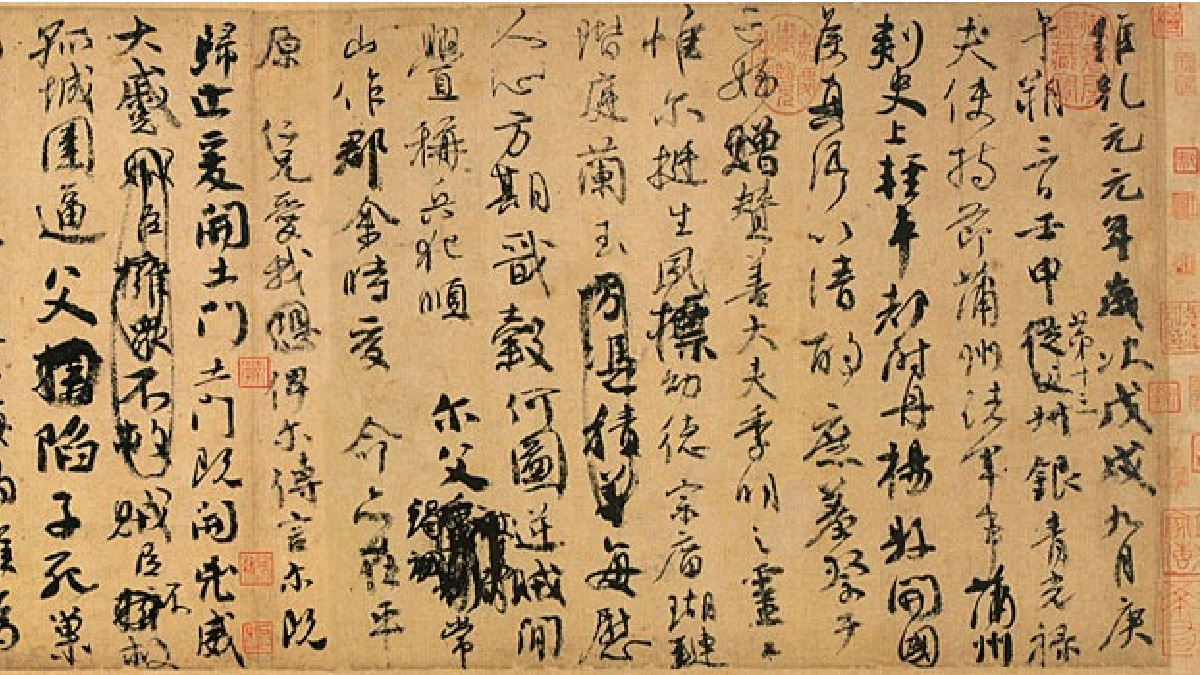 維乾元元年歲次戊戌九月庚
午朔三日壬申第十三從父叔銀青光祿
夫使持節蒲州諸軍事蒲州
刺史上輕車都尉丹楊縣開國
侯真卿以清酌庶羞祭于
亡姪贈贊善大夫季明之靈曰
惟爾挺生夙標幼德宗廟瑚璉
階庭蘭玉方憑積善每慰
人心方期戩穀何圖逆賊閒
釁稱兵犯順爾父竭誠常
山作郡余時受命亦在平
原仁兄愛我恐俾爾傳言爾既
歸止爰開土門土門既開兇威
大蹙賊臣擁眾不救賊臣不救
孤城圍逼父陷子死巢